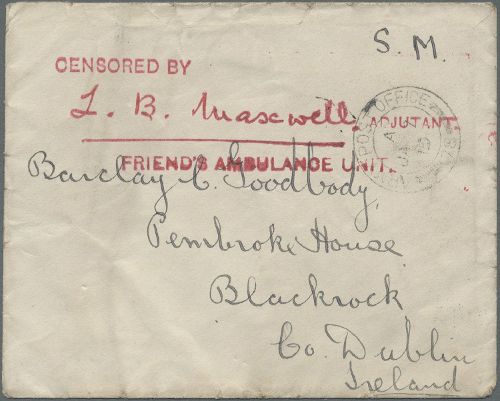 S. M.
CENSORED BY
L. B. Maxwell, ADJUTANT
FRIEND'S AMBULANCE UNIT.
POST OFFICE
Barclay C. Goodbody,
Pembroke House
Blackrock
Co. Dublin
Ireland